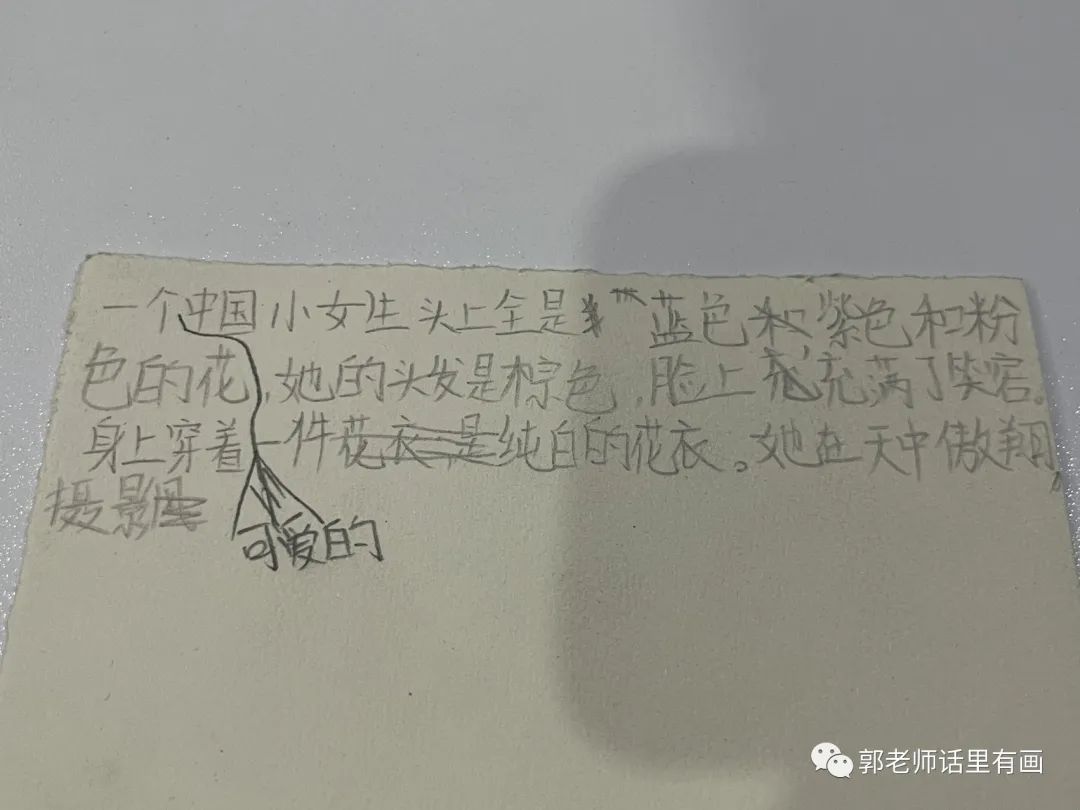 一个中国小女生头上全是蓝色和紫色和粉
色的花,她的头发是棕色,脸上充充满了笑容。
身上穿着一件花衣是纯白的花衣。她在天中傲翔,
摄影
可爱的
郭老师话里有画